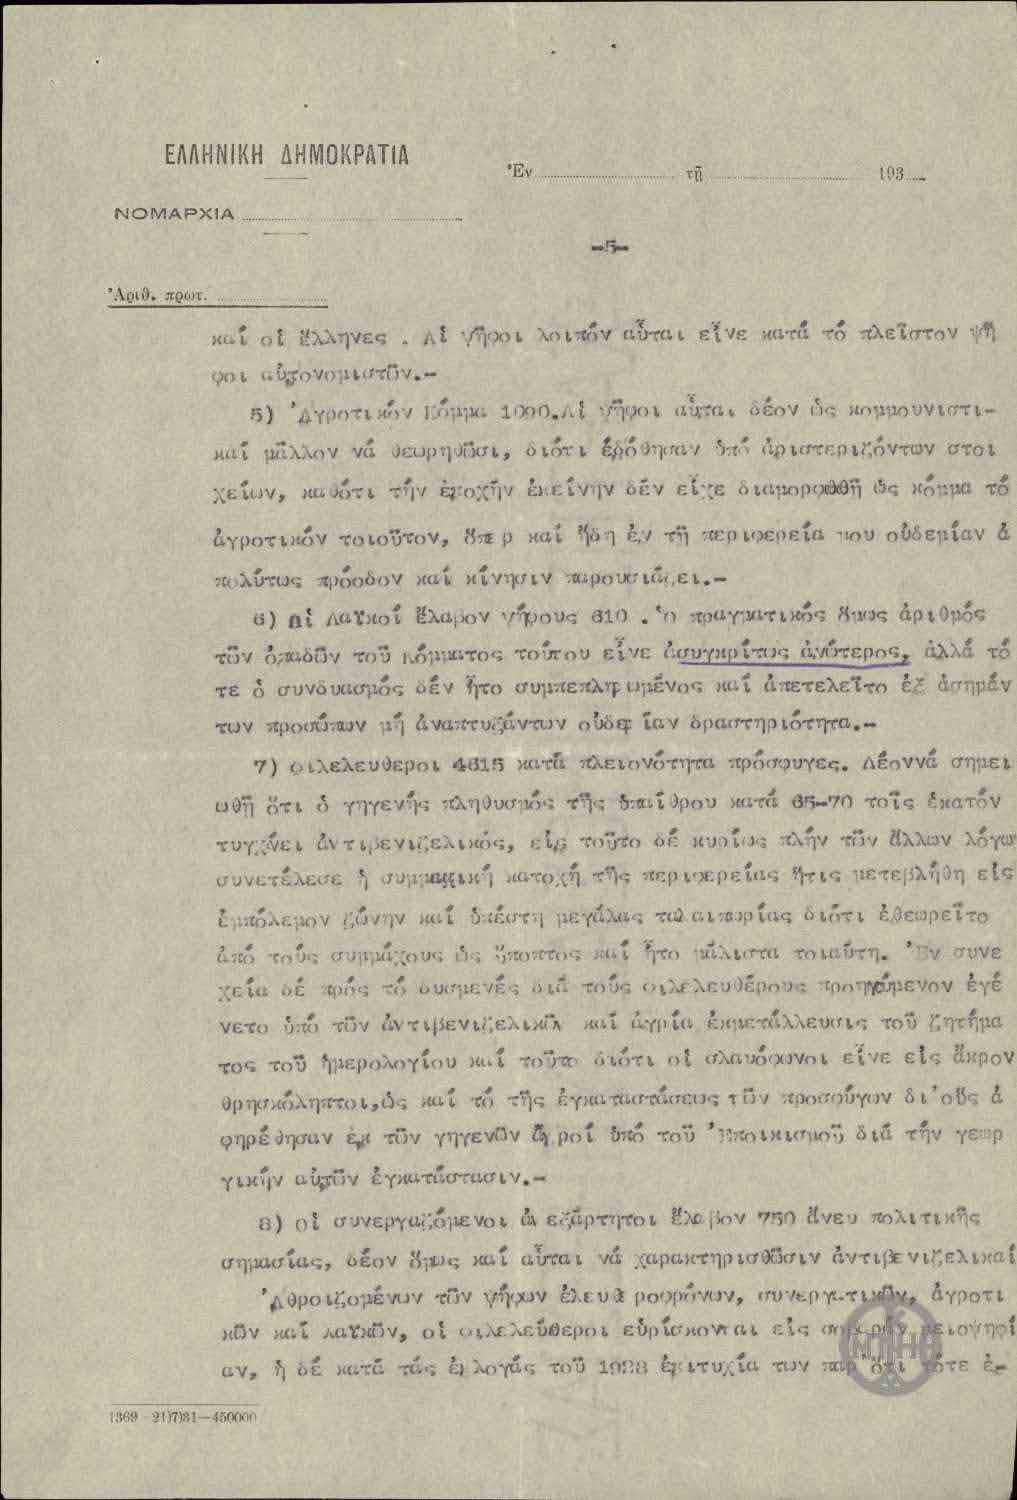 ΕΛΛΗΝΙΚΗ ΔΗΜΟΚΡΑΤΙΑ
Ἐν τῇ 193
ΝΟΜΑΡΧΙΑ
-5-
Ἀριθ. πρωτ.
καί οἱ Ἕλληνες . Αἱ ψῆφοι λοιπόν αὗται εἶνε κατά τό πλεῖστον ψῆ
φοι αὐτονομιστῶν.-
5) Ἀγροτικόν Κόμμα 1090.Αἱ ψῆφοι αὗται δέον ὡς κομμουνιστι-
καί μᾶλλον νά θεωρηθῶσι, διότι ἐδόθησαν ὑπό ἀριστεριζόντων στοι
χείων, καθότι τήν ἐποχήν ἐκείνην δέν εἶχε διαμορφωθῆ ὡς κόμμα τό
ἀγροτικόν τοιοῦτον, ὅπερ καί ἤδη ἐν τῇ περιφερείᾳ μου οὐδεμίαν ἀ
πολύτως πρόοδον καί κίνησιν παρουσιάζει.-
6) Οἱ Λαϊκοί ἔλαβον ψήφους 610 . Ὁ πραγματικός ὅμως ἀριθμός
τῶν ὀπαδῶν τοῦ Κόμματος τούτου εἶνε ἀσυγκρίτως ἀνώτερος, ἀλλά τό
τε ὁ συνδυασμός δέν ἦτο συμπεπληρωμένος καί ἀπετελεῖτο ἐξ ἀσημάν
των προσώπων μή ἀναπτυξάντων οὐδεμίαν δραστηριότητα.-
7) Φιλελεύθεροι 4615 κατά πλειονότητα πρόσφυγες. Δέον νά σημει
ωθῇ ὅτι ὁ γηγενής πληθυσμός τῆς ὑπαίθρου κατά 65-70 τοῖς ἑκατόν
τυγχάνει ἀντιβενιζελικός, εἰς τοῦτο δέ κυρίως πλήν τῶν ἄλλων λόγων
συνετέλεσε ἡ συμμαχική κατοχή τῆς περιφερείας ἥτις μετεβλήθη εἰς
ἐμπόλεμον ζώνην καί ὑπέστη μεγάλας ταλαιπωρίας διότι ἐθεωρεῖτο
ἀπό τούς συμμάχους ὡς ὕποπτος καί ἦτο μάλιστα τοιαύτη. Ἐν συνε
χείᾳ δέ πρός τό δυσμενές διά τούς Φιλελευθέρους προηγούμενον ἐγέ
νετο ὑπό τῶν ἀντιβενιζελικῶν καί ἀγρία ἐκμετάλλευσις τοῦ ζητήμα
τος τοῦ ἡμερολογίου καί τοῦτο διότι οἱ σλαυόφωνοι εἶνε εἰς ἄκρον
θρησκόληπτοι,ὡς καί τό τῆς ἐγκαταστάσεως τῶν προσφύγων δι'οὕς ἀ
φηρέθησαν ἐκ τῶν γηγενῶν ἀγροί ὑπό τοῦ Ἐποικισμοῦ διά τήν γεωρ
γικήν αὐτῶν ἐγκατάστασιν.-
8) Οἱ συνεργαζόμενοι ἀνεξάρτητοι ἔλαβον 750 ἄνευ πολιτικῆς
σημασίας, δέον ὅμως καί αὗται νά χαρακτηρισθῶσιν ἀντιβενιζελικαί
Ἀθροιζομένων τῶν ψήφων ἐλευθεροφρόνων, συνεργατικῶν, ἀγροτι
κῶν καί λαϊκῶν, οἱ Φιλελεύθεροι εὑρίσκονται εἰς σοβαράν μειοψηφί
αν, ἡ δέ κατά τάς ἐκλογάς τοῦ 1928 ἐπιτυχία των παρ' ὅτι τότε ἐ-
1369 - 21)7)31-450000